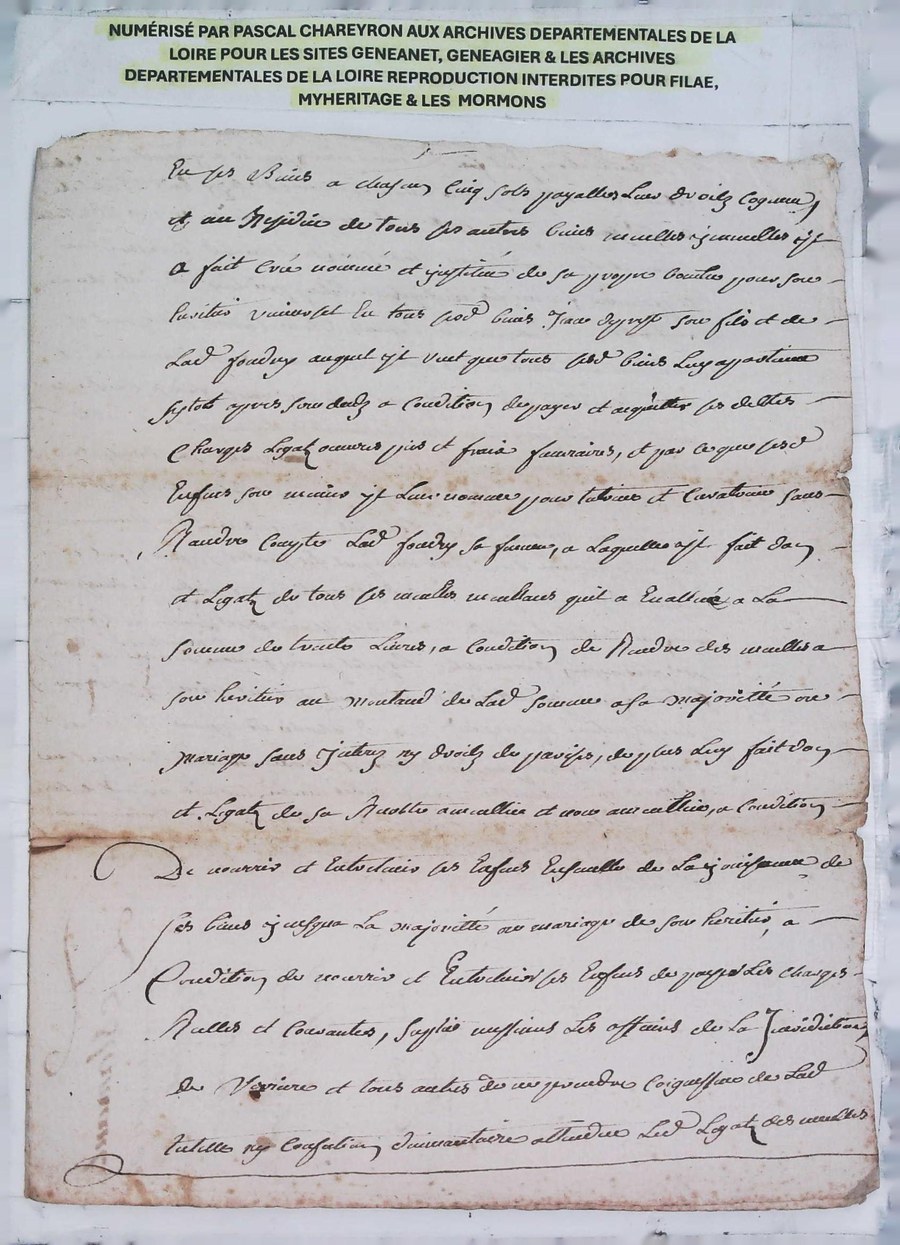 NUMÉRISÉ PAR PASCAL CHAREYRON AUX ARCHIVES DEPARTEMENTALES DE LA
LOIRE POUR LES SITES GENEANET, GENEAGIER & LES ARCHIVES
DEPARTEMENTALES DE LA LOIRE REPRODUCTION INTERDITES POUR FILAE,
MYHERITAGE & LES MORMONS
En ses Biens a chascun Cinq sols payables
et au Residu de tous ses autres biens meubles jmmeubles jl
a fait Créé nommé et jnstitué de sa propre bouche pour son
heritier universel En tous sesd biens Jean son fils et de
Lad foudry auquel jl veut que tous sesd biens Luy apartiene
sytost apres son deceds a Condition de payer et acquitter ses debtes
Charges Legatz oeuvres pies et frais funeraires, et par ce que sesd
Enfans son mineurs jl Leur nomme pour tutrice et Curatrice sans
Randre Compte Lad foudry sa femme, a Laquelle jl fait don
et Legatz de tous ses meubles meublans quil a Evallué a La
somme de trante Livres, a Condition de Randre des meubles a
son heritier au montand de Lad somme a sa majorité ou
mariage sans ny droitz de , de plus Luy fait don
et Legatz de sa Recolte ameublie et non ameublie, a Condition
De nourrir et Entretenir ses Enfans Ensemble de La jouissance de
ses biens jusqua La majorité ou mariage de son heritier, a
Condition de nourrir et Entretenir ses Enfans de payer Les charges
Reelles et Courantes, suplie messieurs Les officiers de La Jurisdiction
de et tous autres de ne prendre Coignoissance de Lad
tutelle ny Confection dinvantaire attendu Led Legatz des meubles